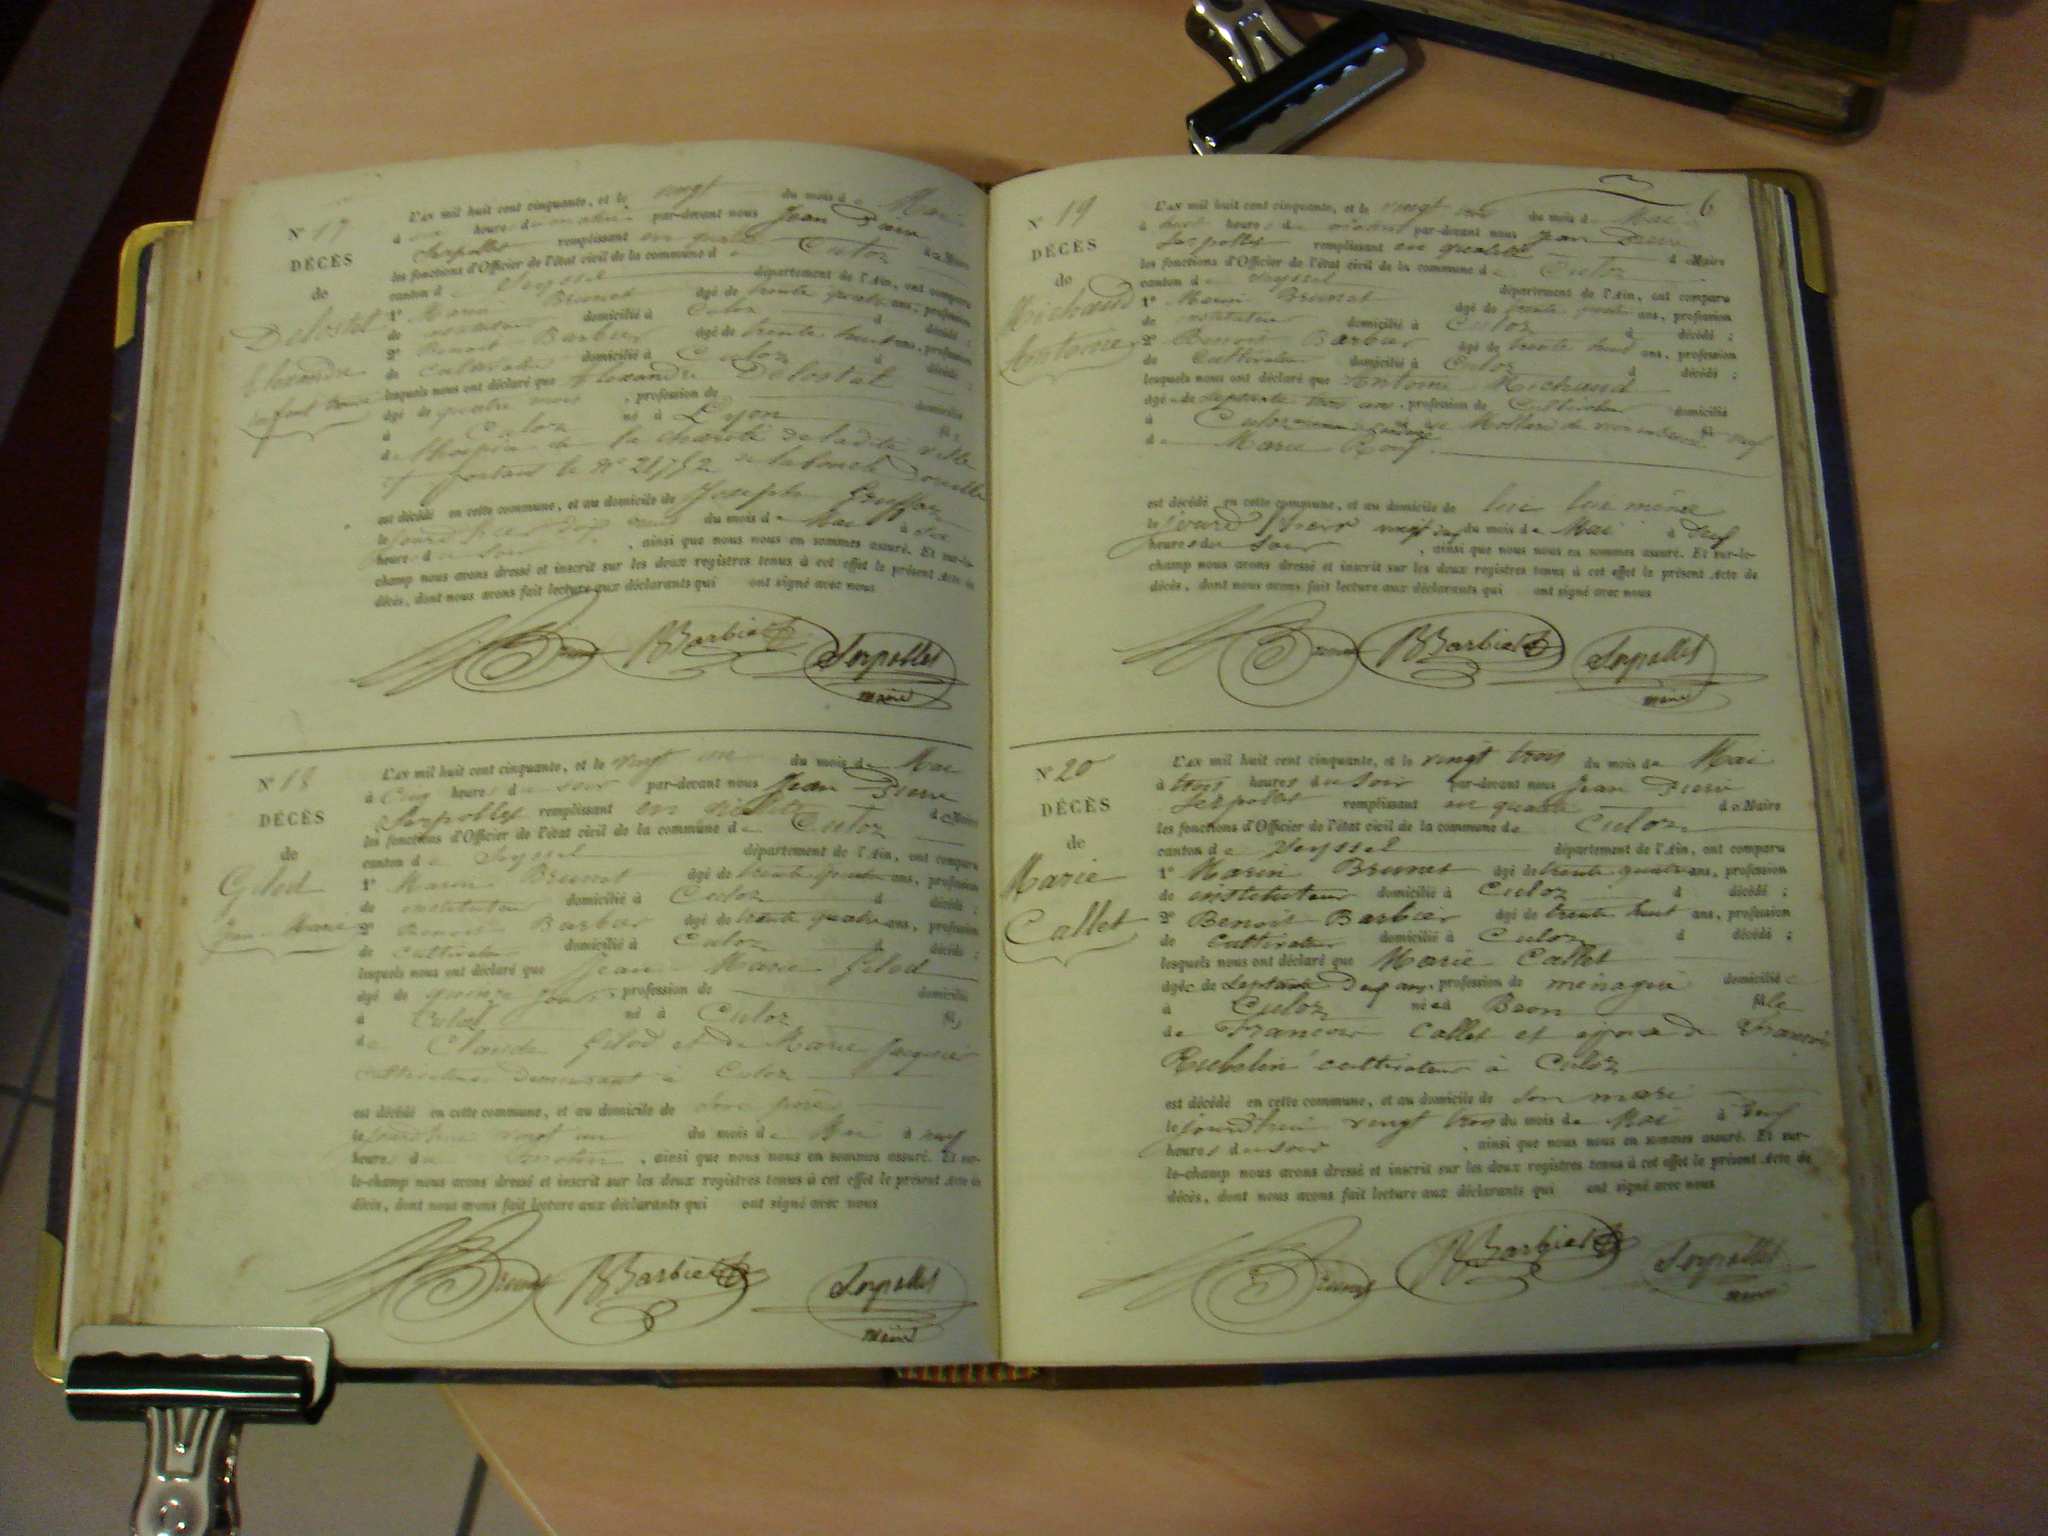 N° 17
DÉCÈS
de
Delostal
enfant
L'an mil huit cent cinquante, et le vingt du mois de Mai
à heures du matin par-devant nous Jean Pierre
Serpollet remplissant en qualité de Maire
les fonctions d'Officier de l'état civil de la commune de Culoz
canton de Seyssel département de l'Ain, ont comparu
1° Marin Brunet âgé de trente quatre ans, profession
de instituteur domicilié à Culoz d décédé ;
2° Benoit Barbier âgé de trente huit ans, profession
de cultivateur domicilié à Culoz d décédé ;
lesquels nous ont déclaré que Alexandre Delostal
âgé de quatre mois, profession de domicilié
à Culoz né à Lyon fils
de l'hospice de la charité de ladite ville
et portant le N°
est décédé en cette commune, et au domicile de Joseph
le jour d'hier dix neuf du mois de Mai à six
heures du soir, ainsi que nous nous en sommes assuré. Et sur-le-
champ nous avons dressé et inscrit sur les deux registres tenus à cet effet le présent Acte de
décès, dont nous avons fait lecture aux déclarants qui ont signé avec nous
Brunet B Barbier Serpollet
maire
N° 18
DÉCÈS
de
Gilod
Jean Marie
L'an mil huit cent cinquante, et le vingt un du mois de Mai
à Cinq heures du soir par-devant nous Jean Pierre
Serpollet remplissant en qualité de Maire
les fonctions d'Officier de l'état civil de la commune de Culoz
canton de Seyssel département de l'Ain, ont comparu
1° Marin Brunet âgé de trente quatre ans, profession
de instituteur domicilié à Culoz d décédé ;
2° Benoit Barbier âgé de trente quatre ans, profession
de cultivateur domicilié à Culoz d décédé ;
lesquels nous ont déclaré que Jean Marie Gilod
âgé de quinze jours, profession de domicilié
à Culoz né à Culoz fils
de Claude Gilod et de Marie Jacquier
cultivateurs demeurant à Culoz
est décédé en cette commune, et au domicile de son père
le jourd'hui vingt un du mois de Mai à neuf
heures du matin, ainsi que nous nous en sommes assuré. Et sur-
le-champ nous avons dressé et inscrit sur les deux registres tenus à cet effet le présent Acte de
décès, dont nous avons fait lecture aux déclarants qui ont signé avec nous
Brunet B Barbier Serpollet
maire
6
N° 19
DÉCÈS
de
Michaud
Antoine
L'an mil huit cent cinquante, et le vingt du mois de Mai
à huit heures du matin par-devant nous Jean Pierre
Serpollet remplissant en qualité de Maire
les fonctions d'Officier de l'état civil de la commune de Culoz
canton de Seyssel département de l'Ain, ont comparu
1° Marin Brunet âgé de trente quatre ans, profession
de instituteur domicilié à Culoz d décédé ;
2° Benoit Barbier âgé de trente huit ans, profession
de Cultivateur domicilié à Culoz d décédé ;
lesquels nous ont déclaré que Antoine Michaud
âgé de septante trois ans, profession de Cultivateur domicilié
à Culoz
de Marie
est décédé en cette commune, et au domicile de lui même
le jour d'hier vingt du mois de Mai à
heures du soir, ainsi que nous nous en sommes assuré. Et sur-le-
champ nous avons dressé et inscrit sur les deux registres tenus à cet effet le présent Acte de
décès, dont nous avons fait lecture aux déclarants qui ont signé avec nous
Brunet B Barbier Serpollet
maire
N° 20
DÉCÈS
de
Marie
Callet
L'an mil huit cent cinquante, et le vingt trois du mois de Mai
à trois heures du soir par-devant nous Jean Pierre
Serpollet remplissant en qualité de Maire
les fonctions d'Officier de l'état civil de la commune de Culoz
canton de Seyssel département de l'Ain, ont comparu
1° Marin Brunet âgé de trente quatre ans, profession
de instituteur domicilié à Culoz d décédé ;
2° Benoit Barbier âgé de trente huit ans, profession
de Cultivateur domicilié à Culoz d décédé ;
lesquels nous ont déclaré que Marie Callet
âgée de septante ans, profession de ménagère domicilié
à Culoz née à Béon fille
de François Callet et épouse de François
cultivateur à Culoz
est décédé en cette commune, et au domicile de son mari
le jourd'hui vingt trois du mois de Mai à
heures du soir, ainsi que nous nous en sommes assuré. Et sur-
le-champ nous avons dressé et inscrit sur les deux registres tenus à cet effet le présent Acte de
décès, dont nous avons fait lecture aux déclarants qui ont signé avec nous
Brunet B Barbier Serpollet
maire